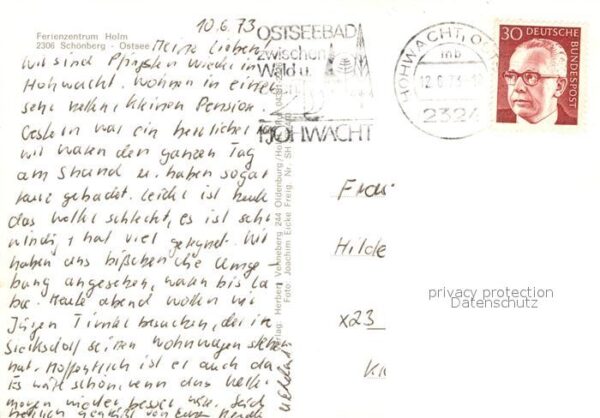 10.6.73
Ferienzentrum Holm
2306 Schönberg - Ostsee
Meine Lieben,
wir sind Pfingsten wieder in
Hohwacht. Wohnen in einer
sehr netten kleinen Pension.
Gestern war ein herrlicher Tag
wir waren den ganzen Tag
am Strand u. haben sogar
kurz gebadet. Leider ist heute
das Wetter schlecht, es ist sehr
windig, hat viel geregnet. Wir
haben uns bißchen die Umge-
bung angesehen, waren bis La-
boe. Heute abend wollen wir
Jürgen besuchen, der in
Sierksdorf seinen Wohnwagen stehen
hat. Hoffentlich ist er auch da.
Es wäre schön, wenn das Wetter
morgen wieder besser wäre. Seid
herzlich gegrüßt von Eurer
OSTSEEBAD
zwischen
Wald u.
HOHWACHT
HOHWACHT, OS
mb
12.6.73
2324
30 DEUTSCHE
BUNDESPOST
Verlag: Herbert Venneberg 244 Oldenburg/Ho
Foto: Joachim Eicke Freig. Nr. SH
Frau
Hilde
x23
privacy protection
Datenschutz